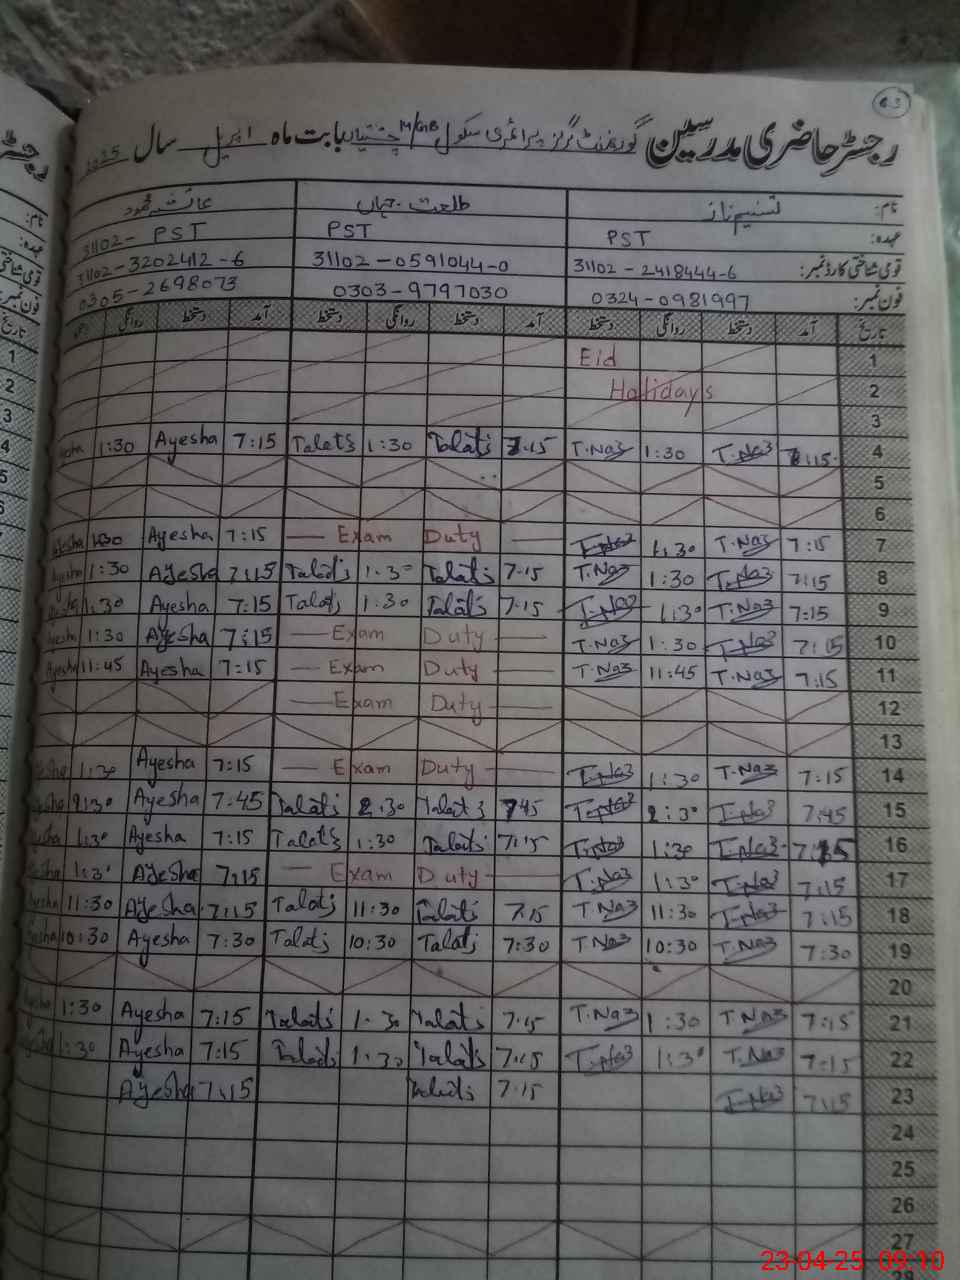 63
رجسٹر حاضری مدرسین گورنمنٹ گرلز پرائمری سکول M/GB چشتیاں بابت ماہ اپریل سال 2025
نام: تسنیم ناز طلعت جہاں عائشہ محمود
عہدہ: PST PST PST
قومی شناختی کارڈ نمبر: 31102-2418444-6 31102-0591044-0 31102-3202412-6
فون نمبر: 0324-0981997 0303-9797030 0305-2698073
تاریخ آمد دستخط روانگی دستخط آمد دستخط روانگی دستخط آمد دستخط روانگی
Eid 1
Holidays 2
3
1:30 Ayesha 7:15 Talat 1:30 Talat 7:15 T.Naz 1:30 T.Naz 7:15 4
5
6
Ayesha 1:30 Ayesha 7:15 — Exam Duty — T.Naz 1:30 T.Naz 7:15 7
Ayesha 1:30 Ayesha 7:15 Talat 1:30 Talat 7:15 T.Naz 1:30 T.Naz 7:15 8
1:30 Ayesha 7:15 Talat 1:30 Talat 7:15 T.Naz 1:30 T.Naz 7:15 9
Ayesha 1:30 Ayesha 7:15 — Exam Duty — T.Naz 1:30 T.Naz 7:15 10
Ayesha 11:45 Ayesha 7:15 — Exam Duty — T.Naz 11:45 T.Naz 7:15 11
— Exam Duty — 12
13
1:30 Ayesha 7:15 — Exam Duty — T.Naz 1:30 T.Naz 7:15 14
2:30 Ayesha 7:45 Talat 2:30 Talat 7:45 T.Naz 2:30 T.Naz 7:45 15
1:30 Ayesha 7:15 Talat 1:30 Talat 7:15 T.Naz 1:30 T.Naz 7:15 16
1:30 Ayesha 7:15 — Exam Duty — T.Naz 1:30 T.Naz 7:15 17
Ayesha 11:30 Ayesha 7:15 Talat 11:30 Talat 7:15 T.Naz 11:30 T.Naz 7:15 18
Ayesha 10:30 Ayesha 7:30 Talat 10:30 Talat 7:30 T.Naz 10:30 T.Naz 7:30 19
20
Ayesha 1:30 Ayesha 7:15 Talat 1:30 Talat 7:15 T.Naz 1:30 T.Naz 7:15 21
Ayesha 1:30 Ayesha 7:15 Talat 1:30 Talat 7:15 T.Naz 1:30 T.Naz 7:15 22
Ayesha 7:15 Talat 7:15 T.Naz 7:15 23
24
25
26
27
28
23-04-25 09:10